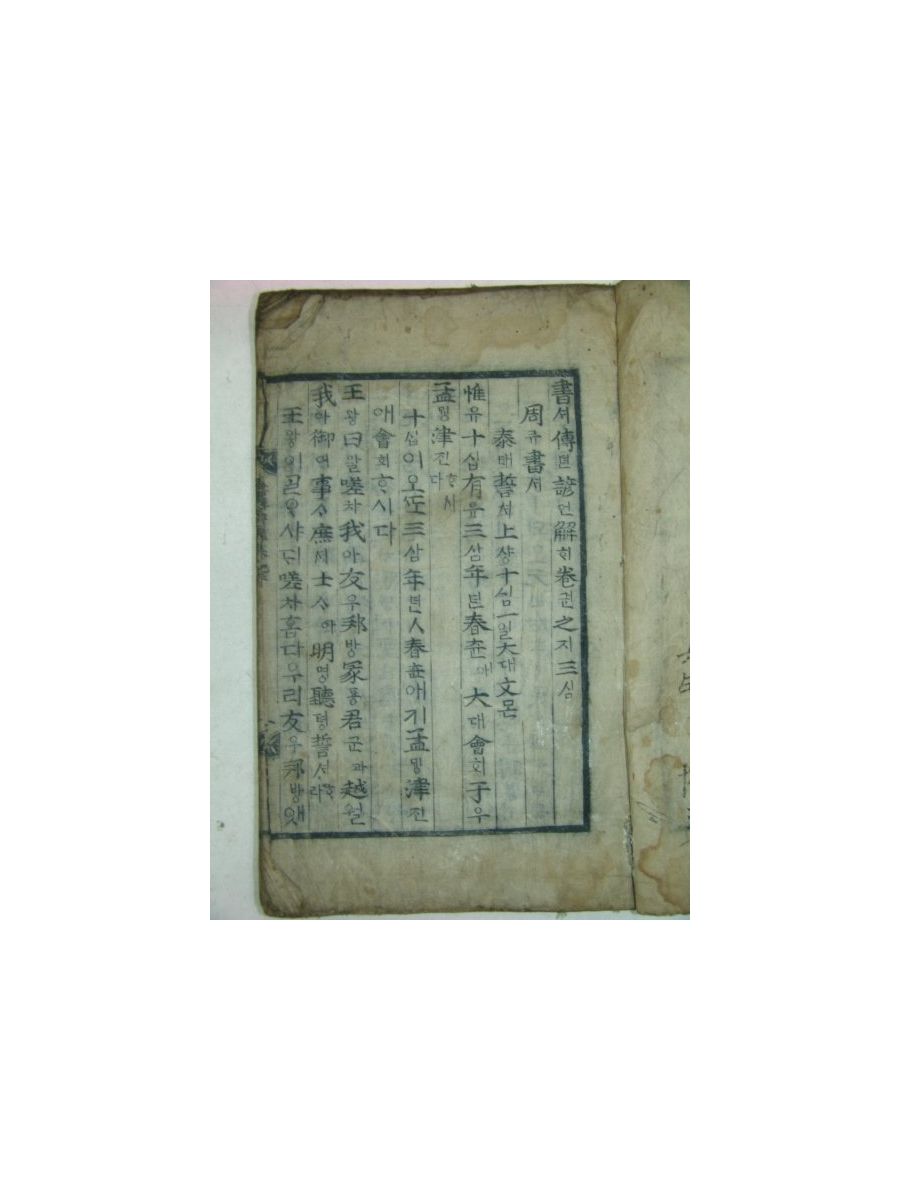 書셔傳뎐諺언解ᄒᆡ卷권之지三삼
周쥬書셔
泰태誓셔上샹十십一일大대文문
惟유十십有유三삼年년春츈애大대會회于우
孟ᄆᆡᆼ津진ᄒᆞ시다
十십이오ᄯᅩ三삼年년人春츈애기孟ᄆᆡᆼ津진
애會회ᄒᆞ시다
王왕曰왈嗟차我아友우邦방冢통君군과越월
我아御어事ᄉᆞ庶셔士ᄉᆞ아明명聽텽誓셔ᄒᆞ라
王왕이ᄀᆞᆯᄋᆞ샤ᄃᆡ嗟차홈다우리友우邦방앳